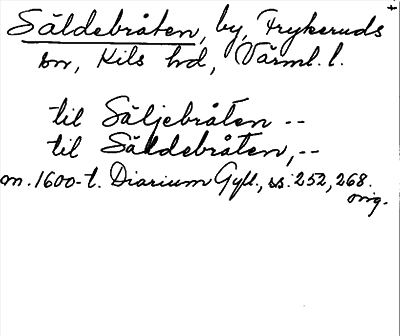 Säldebråten, by, Frykeruds
sn, Kils hd, Värml. l.
til Säljebråten --
til Säldebråten, --
m. 1600-t. Diarium Gyll., ss. 252, 268.
orig.